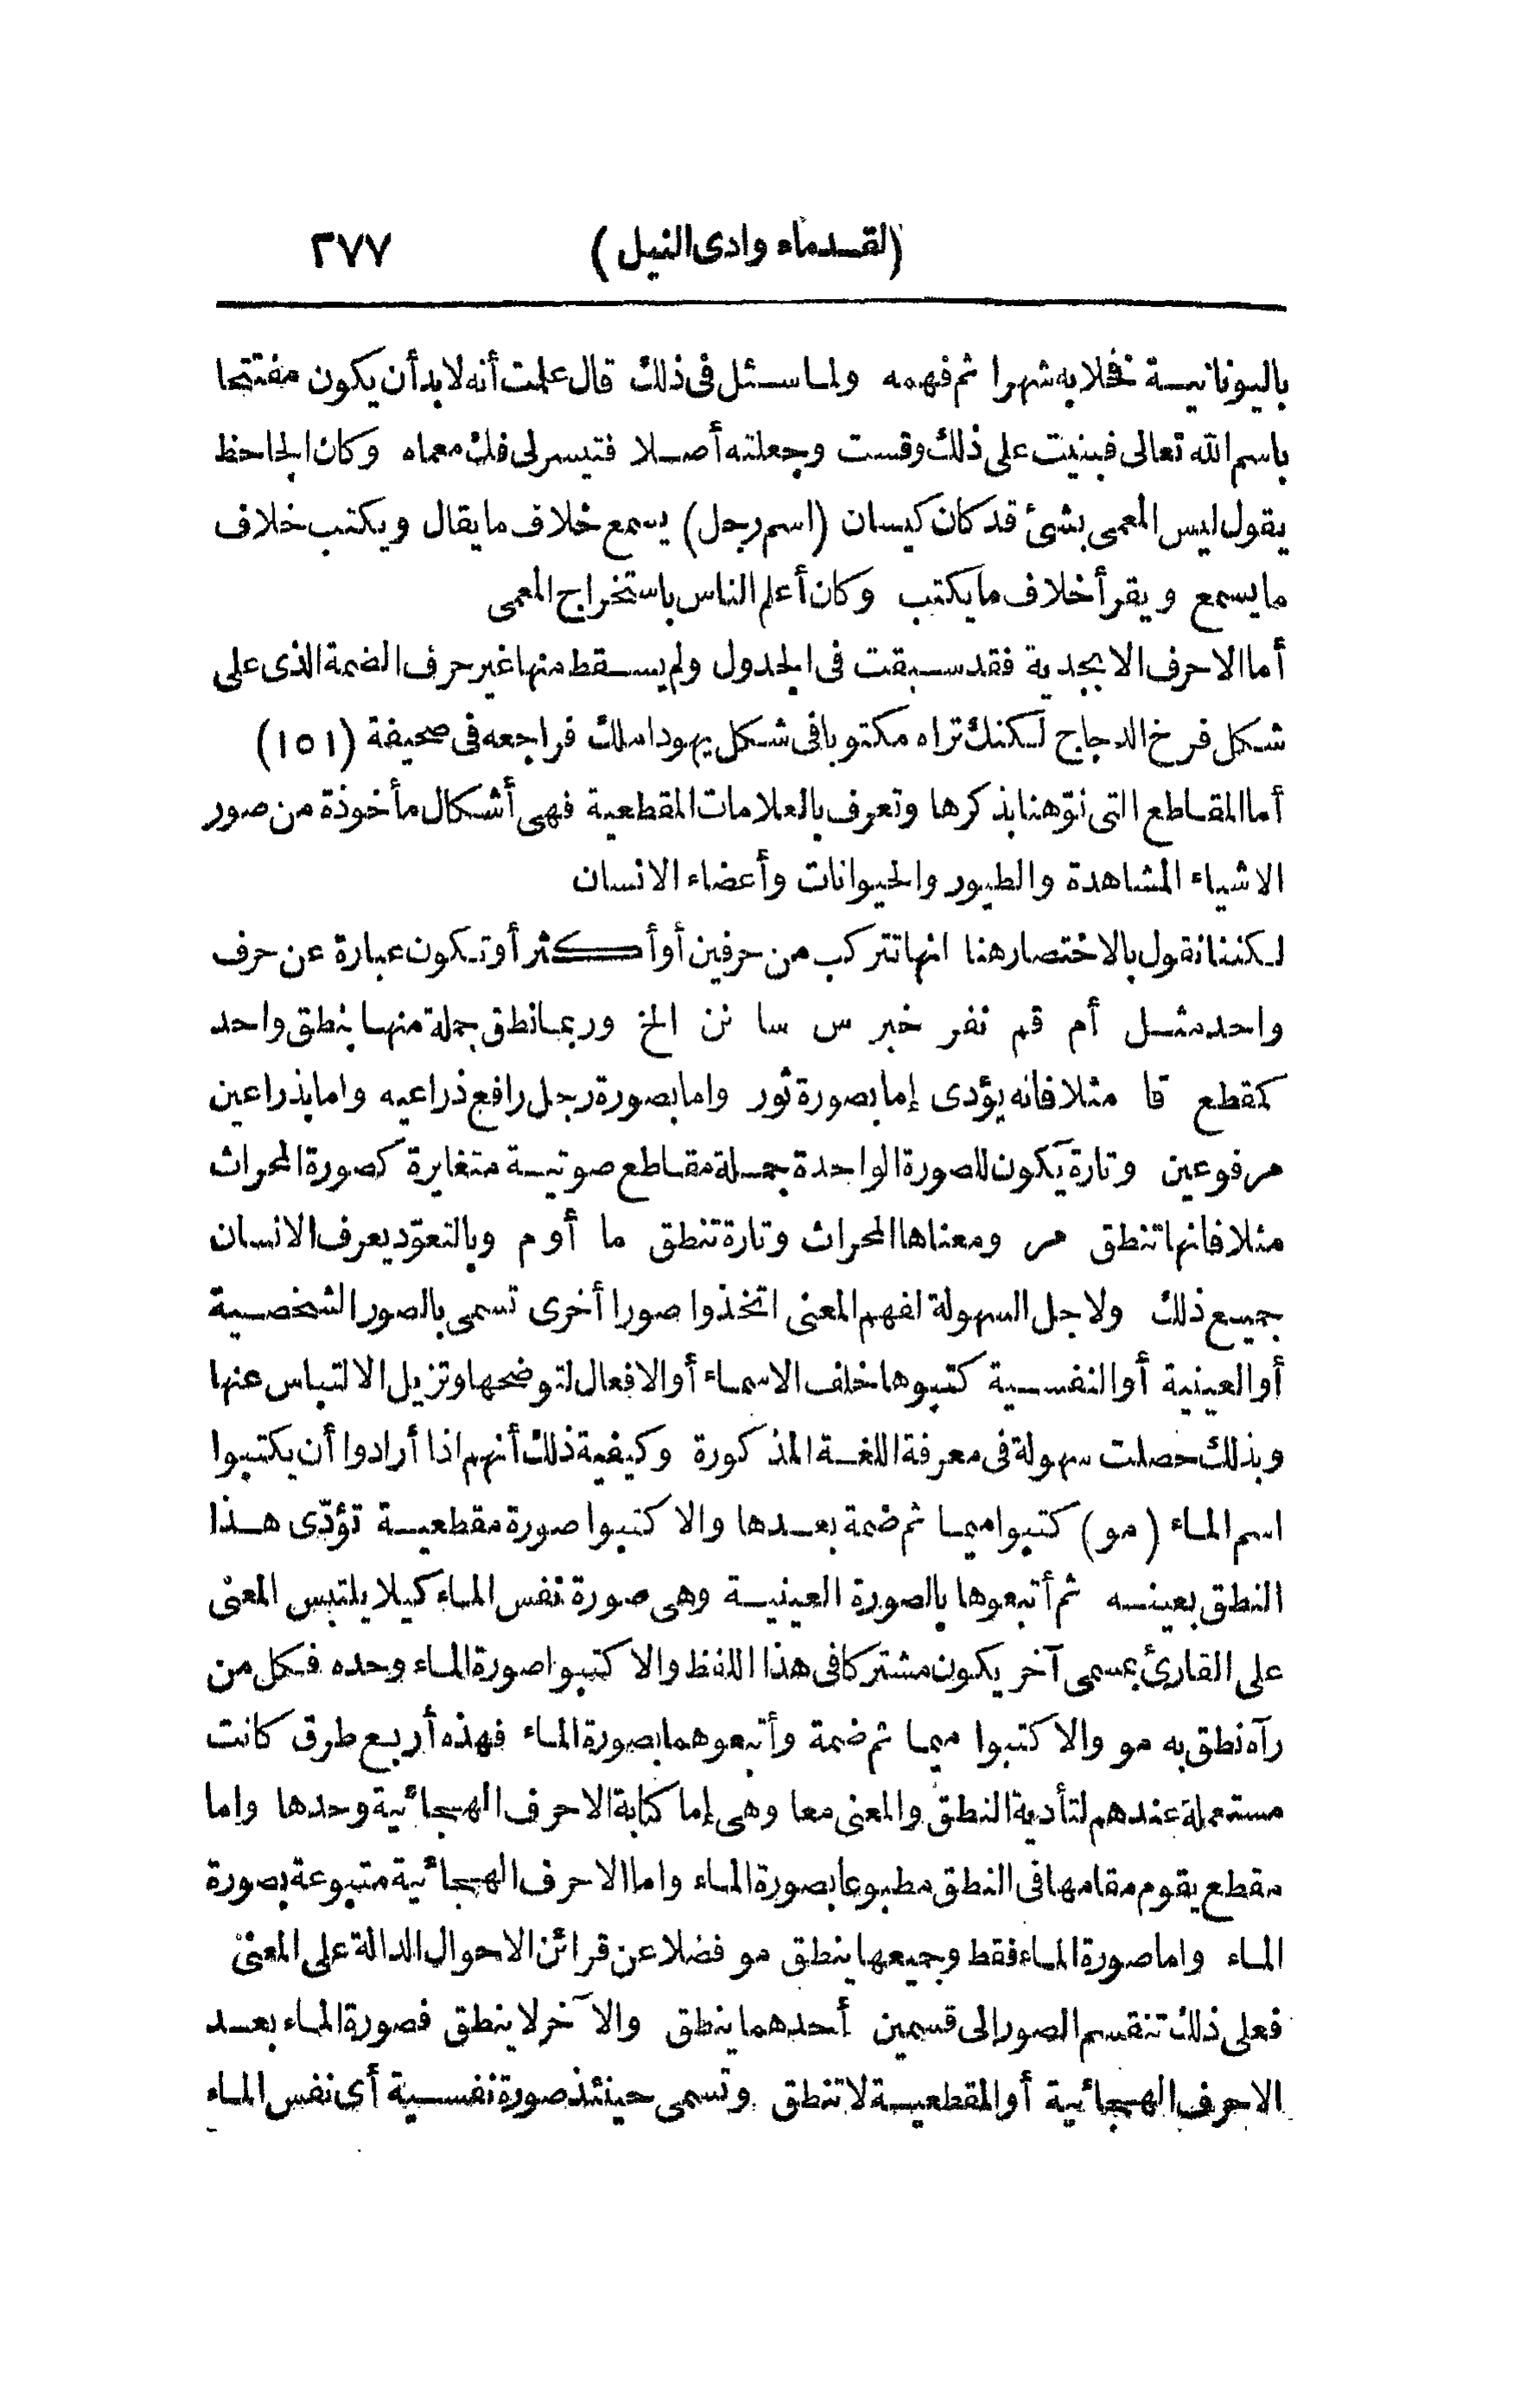 (لقدماء وادى النيل) ٢٧٧
باليونانية فخلا به شهرا ثم فهمه ولما سئل فى ذلك قال علمت أنه لا بد أن يكون مفتتحا
باسم الله تعالى فبنيت على ذلك وقست وجعلته أصلا فتيسر لى فك معماه وكان الجاحظ
يقول ليس المعمى بشئ قد كان كيسان (اسم رجل) يسمع خلاف ما يقال ويكتب خلاف
ما يسمع ويقرأ خلاف ما يكتب وكان أعلم الناس باستخراج المعمى
أما الاحرف الابجدية فقد سبقت فى الجدول ولم يسقط منها غير حرف الضمة الذى على
شكل فرخ الدجاج لكنك تراه مكتوبا فى شكل يهودا ملك فراجعه فى صحيفة (١٥١)
أما المقاطع التى نوّهنا بذكرها وتعرف بالعلامات المقطعية فهى أشكال مأخوذة من صور
الاشياء المشاهدة والطيور والحيوانات وأعضاء الانسان
لكننا نقول بالاختصار هنا انها تتركب من حرفين أو أكثر أو تكون عبارة عن حرف
واحد مثل أم قم نفر خبر س سا نن الخ وربما نطق جملة منها بنطق واحد
كمقطع قا مثلا فانه يؤدى إما بصورة ثور واما بصورة رجل رافع ذراعيه واما بذراعين
مرفوعين وتارة يكون للصورة الواحدة جملة مقاطع صوتية متغايرة كصورة المحراث
مثلا فانها تنطق مر ومعناها المحراث وتارة تنطق ما أو م وبالتعوّد يعرف الانسان
جميع ذلك ولاجل السهولة لفهم المعنى اتخذوا صورا أخرى تسمى بالصور الشخصية
أو العينية أو النفسية كتبوها خلف الاسماء أو الافعال لتوضحها وتزيل الالتباس عنها
وبذلك حصلت سهولة فى معرفة اللغة المذكورة وكيفية ذلك أنهم اذا أرادوا أن يكتبوا
اسم الماء (مو) كتبوا ميما ثم ضمة بعدها والا كتبوا صورة مقطعية تؤدّى هذا
النطق بعينه ثم أتبعوها بالصورة العينية وهى صورة نفس الماء كيلا يلتبس المعنى
على القارئ بمسمى آخر يكون مشتركا فى هذا اللفظ والا كتبوا صورة الماء وحده فكل من
رآه نطق به مو والا كتبوا ميما ثم ضمة وأتبعوهما بصورة الماء فهذه أربع طرق كانت
مستعملة عندهم لتأدية النطق والمعنى معا وهى إما كتابة الاحرف الهجائية وحدها واما
مقطع يقوم مقامها فى النطق مطبوعا بصورة الماء واما الاحرف الهجائية متبوعة بصورة
الماء واما صورة الماء فقط وجميعها ينطق مو فضلا عن قرائن الاحوال الدالة على المعنى
فعلى ذلك تنقسم الصور إلى قسمين أحدهما ينطق والآخر لا ينطق فصورة الماء بعد
الاحرف الهجائية أو المقطعية لا تنطق وتسمى حينئذ صورة نفسية أى نفس الماء